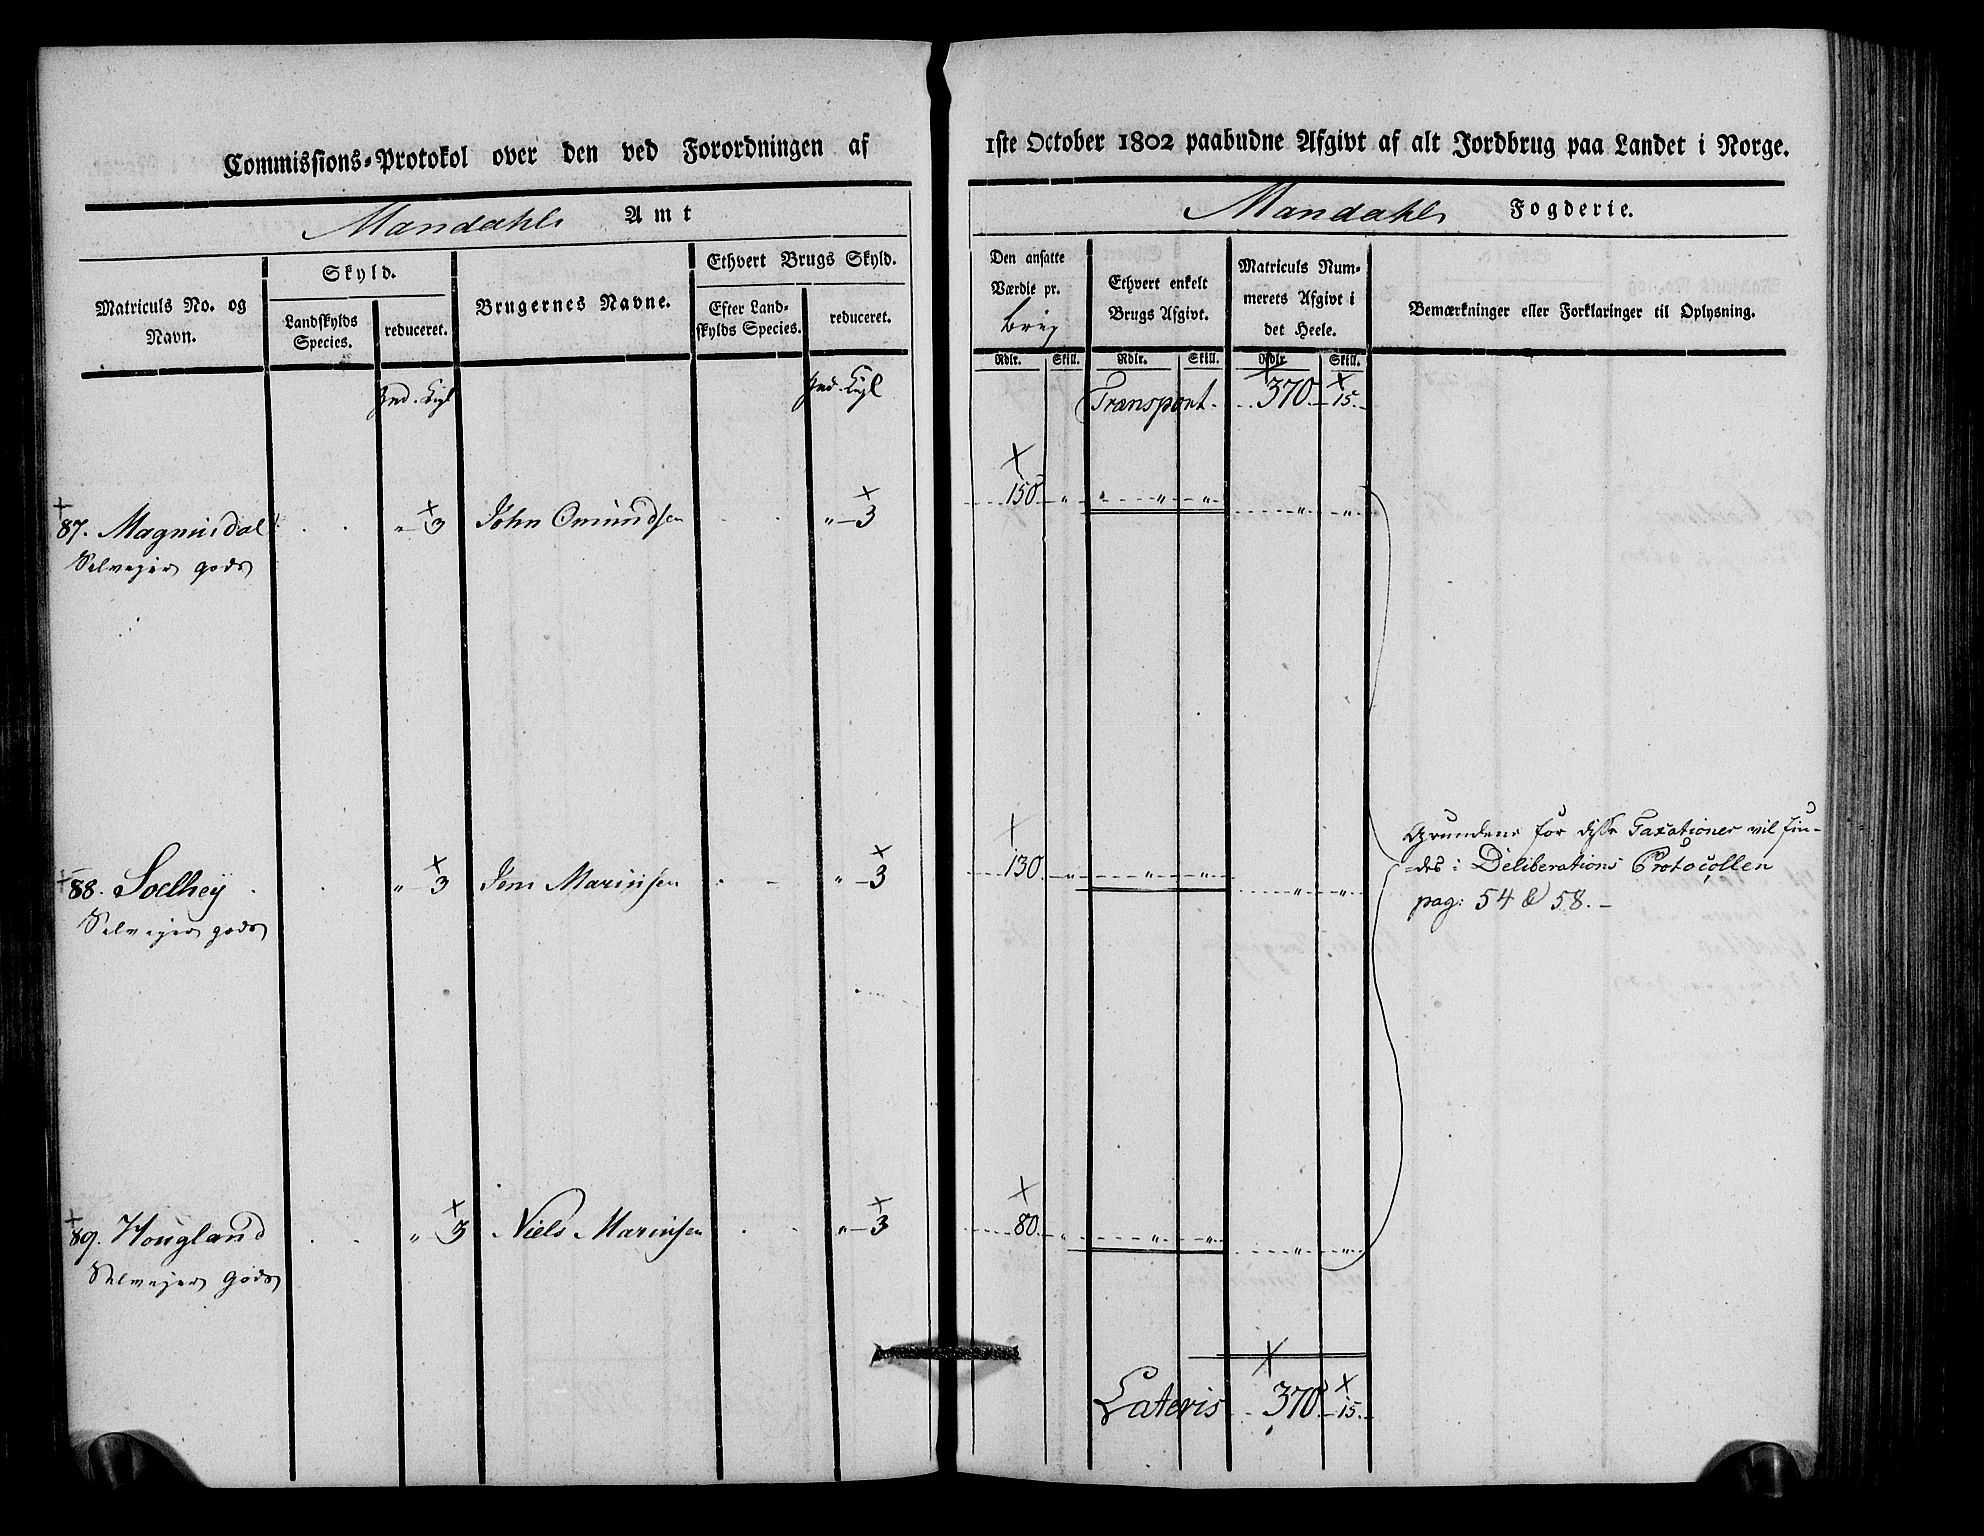 Commissions-Protokol over den ved Forordningen af 1ste October 1802 paabudne Afgivt af alt Jordbrug paa Landet i Norge.
Mandahls Amt
Mandahls Fogderie.
Matriculs No. og Navn.
Skyld.
Landskylds Species.
reduceret.
Brugernes Navne.
Ethvert Brugs Skyld.
Efter Landskylds Species.
reduceret.
Den ansatte Værdie pr. brug
Rdlr. Skill.
Ethvert enkelt Brugs Afgivt.
Rdlr. Skill.
Matriculs Nummerets Afgivt i det Heele.
Rdlr. Skill.
Bemærkninger eller Forklaringer til Oplysning.
Transport. 370. 15.
87. Magnusdal „ 3 John Omundsen „ 3 150 „ „ „ „ „
Selvejer gods
88. Soelhey „ 3 Jens Mariusen „ 3 130 „ „ „ „ „
Selvejer gods
89. Hougland „ 3 Niels Mariusen „ 3 80 „ „ „ „ „
Selvejer gods
Grundene for disse Taxationer vil fin-
des i Deliberations Protocollen
pag: 54 & 58.
Lateris 370. 15.